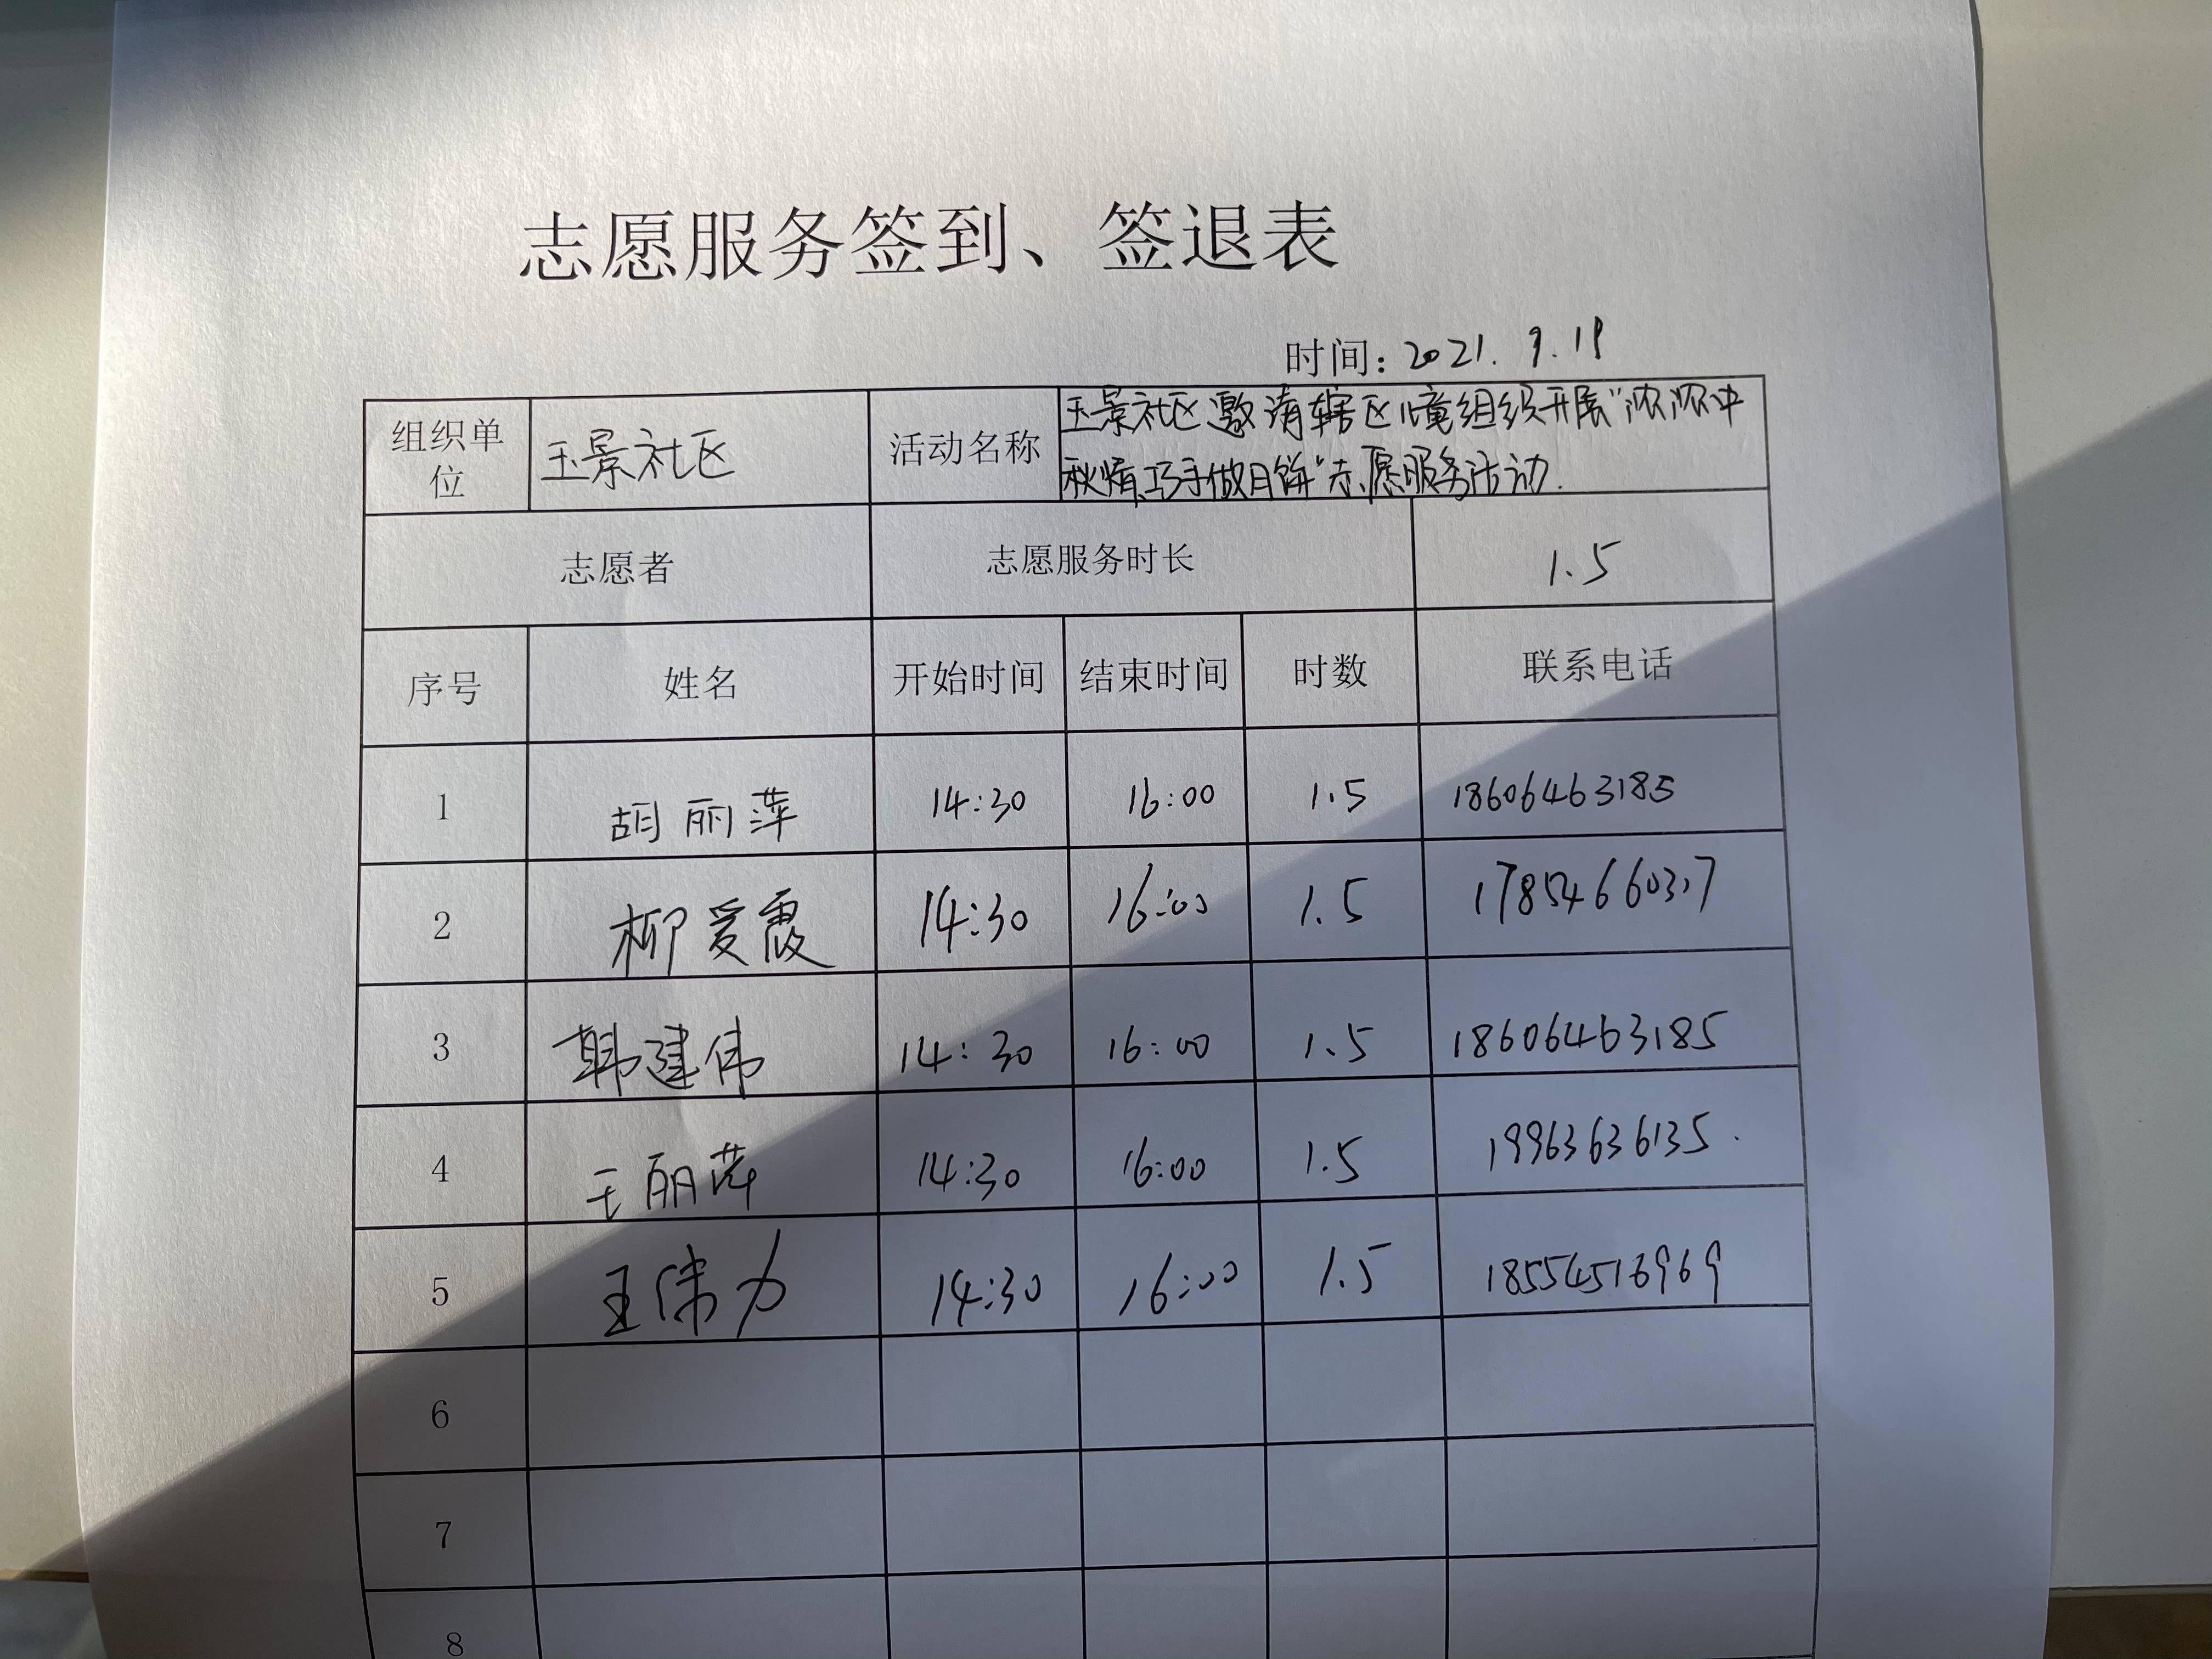 志愿服务签到、签退表
时间：2021.9.19
组织单位 玉景社区 活动名称 玉景社区邀请辖区儿童组织开展“浓浓中
秋情、巧手做月饼”志愿服务活动.
志愿者 志愿服务时长 1.5
序号 姓名 开始时间 结束时间 时数 联系电话
1 胡丽萍 14:30 16:00 1.5 18606463185
2 柳爱霞 14:30 16:00 1.5
3 韩建伟 14:30 16:00 1.5 18606463185
4 王丽萍 14:30 16:00 1.5 19963636135.
5 王伟力 14:30 16:00 1.5 18554516969
6
7
8